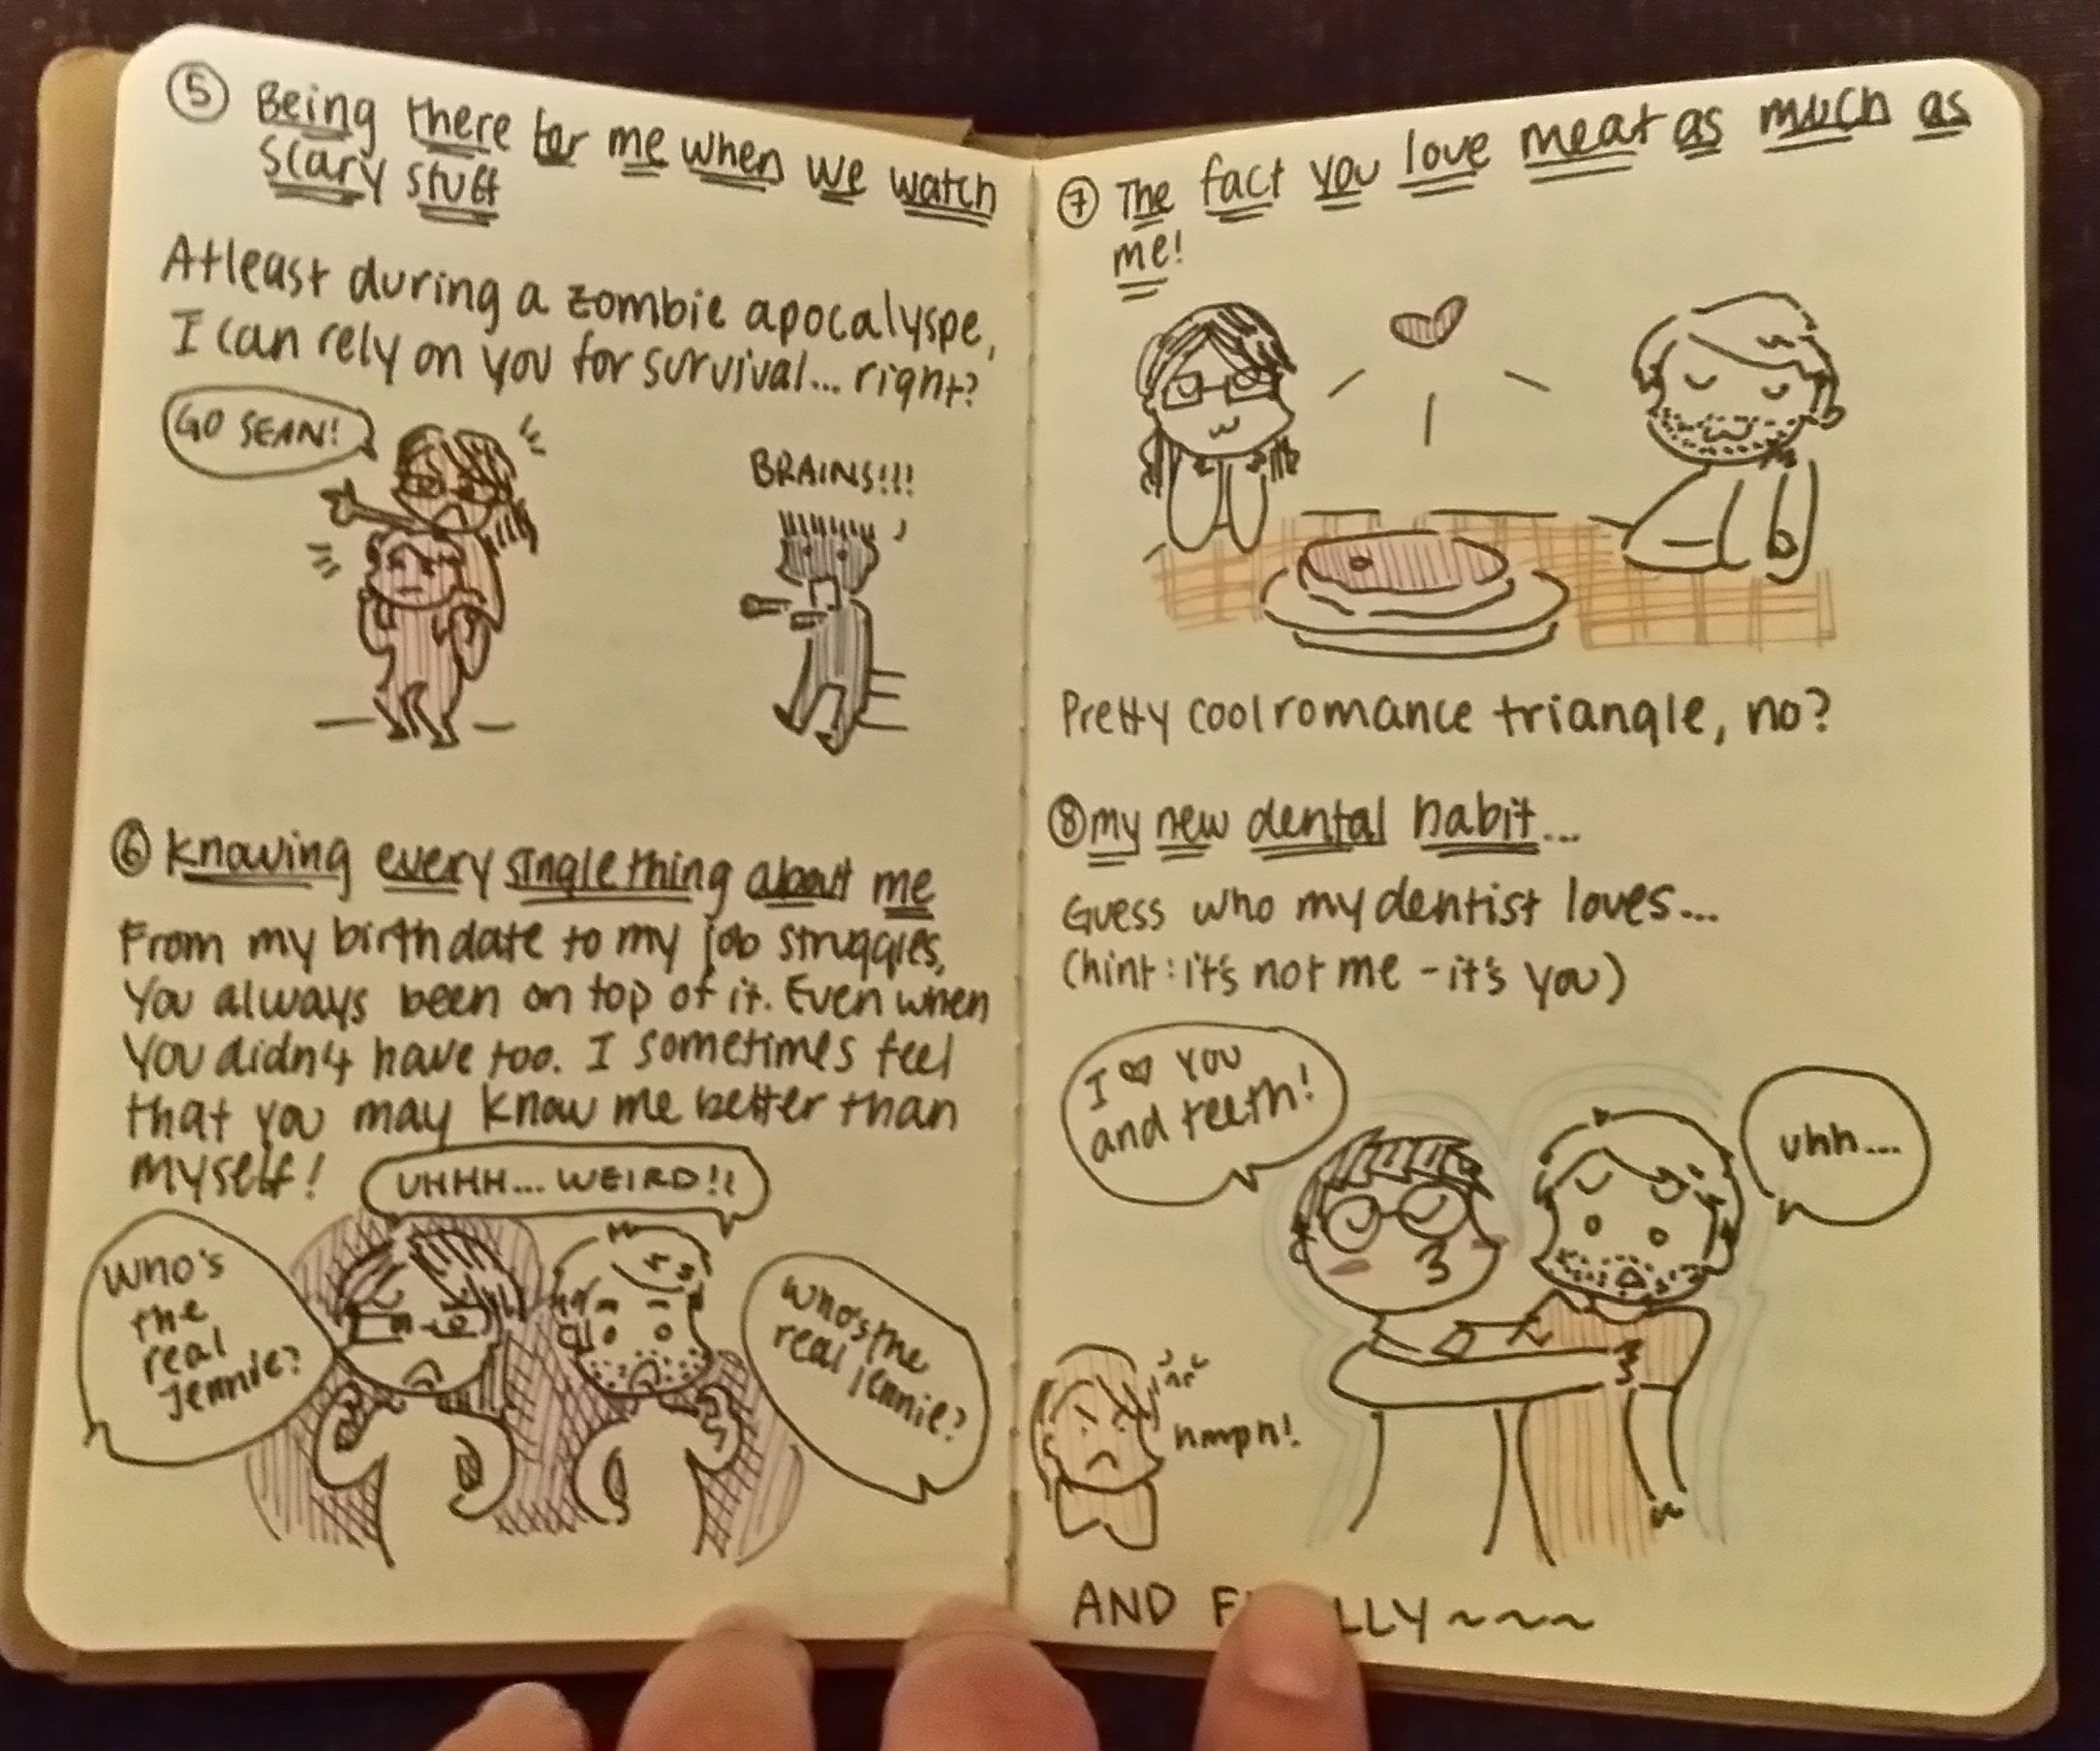 ⑤ Being there for me when we watch
scary stuff
Atleast during a zombie apocalyspe,
I can rely on you for survival... right?
GO SEAN!
BRAINS!!!
⑥ Knowing every single thing about me
From my birth date to my job struggles,
You always been on top of it. Even when
You didn't have too. I sometimes feel
that you may know me better than
myself!
UHHH... WEIRD!!
Who's
the
real
Jennie?
Who's the
real Jennie?
⑦ The fact you love meat as much as
me!
Pretty cool romance triangle, no?
⑧ my new dental habit...
Guess who my dentist loves...
(hint: it's not me - it's you)
I ♡ YOU
and teeth!
uhh...
hmph!
AND F LLY~~~